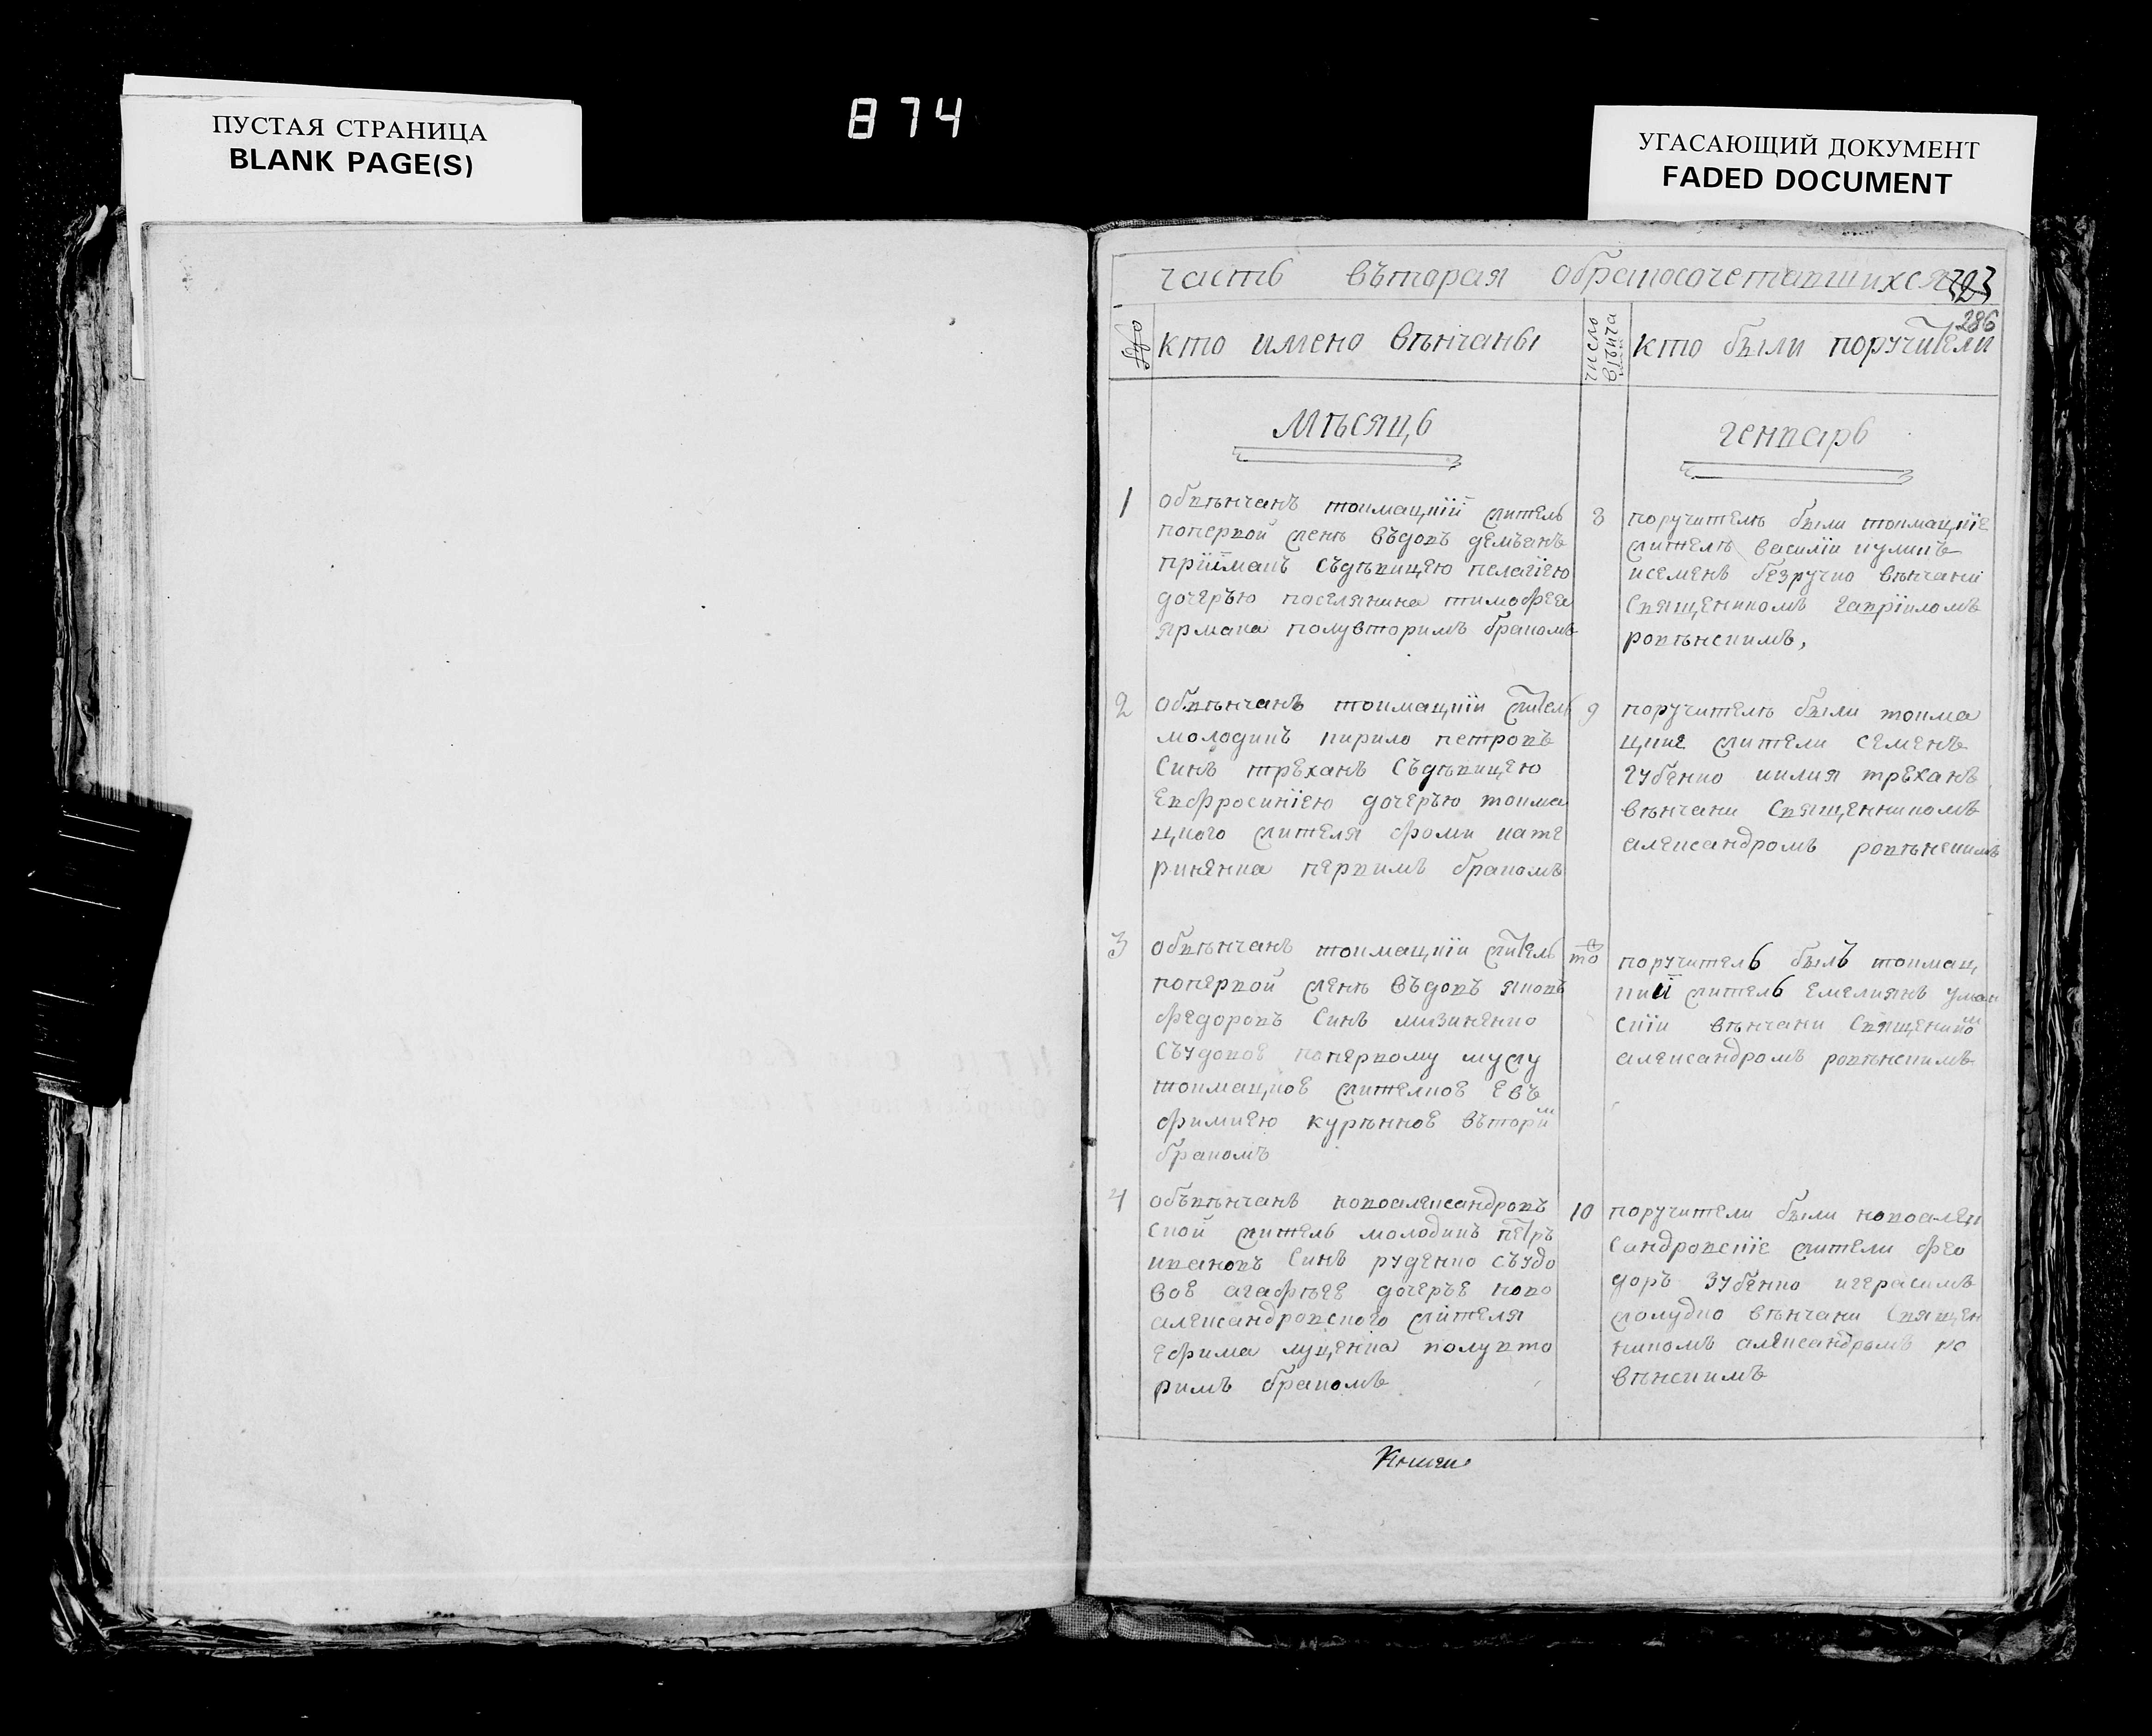 ПУСТАЯ СТРАНИЦА
BLANK PAGE(S)
874
УГАСАЮЩИЙ ДОКУМЕНТ
FADED DOCUMENT
часть въторая обракосочетавшихся
286
кто имено вѣнчаны
число
кто были поручители
Мѣсяць
генварь
1
обвѣнчанъ токмацкій житель
поперкой женѣ въдовъ демъянъ
пріймакъ съдѣвицею пелагіею
дочеръю поселянина тимофея
ярмака полувторимъ бракомъ
8
поручителѣ были токмацкіе
жителѣ василіи куликъ
исеменъ безручко вѣнчани
священикомъ гавріиломъ
ровѣнскимъ,
2
обвѣнчанъ токмацкіи житель
молодикъ кирило петровъ
синъ треханъ съдѣвицею
евфросиніею дочеръю токма
цкого жителя фоми кате
риненка первимъ бракомъ
9
поручителѣ были токма
цкие жители семенъ
губенко иилия треханъ
вѣнчани священникомъ
александромъ ровѣнскимъ
3
обвѣнчанъ токмацкіи житель
поперкой женѣ въдовъ яковъ
федоровъ синъ мизиненко
съудовоѣ поперкому мужу
токмацкоѣ жителкоѣ евъ
фимиею курѣнноѣ въторим
бракомъ
то
поручитель былъ токмац
кий житель емелиянъ уман
скіи вѣнчани священиком
александромъ ровѣнскимъ
4
объвѣнчанъ новоалександровъ
ской житель молодикъ петръ
ивановъ синъ руденко съудо
воѣ агафѣеѣ дочеръѣ ново
александровского жителя
ефима луценка полувто
римъ бракомъ
10
поручители были новоалек
сандровскіе жители фео
доръ зубенко игерасимъ
жолудко вѣнчани священ
никомъ александромъ ро
вѣнскимъ
Книги